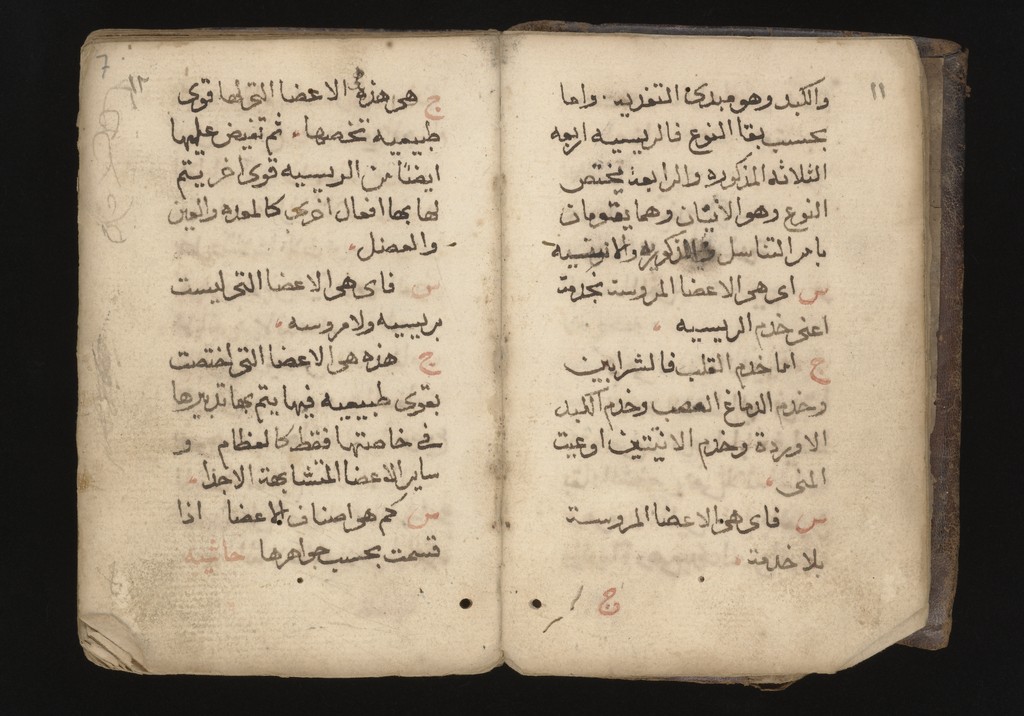 ١١
والكبد وهو مبدئ التغذيه. واما
بحسب بقا النوع فالرييسيه اربعه
الثلاثه المذكوره والرابعه يختص
النوع وهو الانثيان وهما يقومان
بامر التناسل والذكوريه والانوثييه
س اى هى الاعضا المروسه بخدمة
اعنى خدم الرييسيه .
ج اما خدم القلب فالشرايين
وخدم الدماغ العصب وخدم الكبد
الاوردة وخدم الانثيين اوعيت
المنى .
س فاى هى الاعضا المروسة
بلا خدمة .
ج
7
١٢
ج هى هذه الاعضا التى لها قوى
طبيعيه تخصها . ثم تفيض عليها
ايضا من الرييسيه قوى اخر يتم
لها بها افعال اخرى كالمعده والعين
والعضل .
س فاى هى الاعضا التى ليست
برييسيه ولا مروسه .
ج هذه هى الاعضا التى اختصت
بقوى طبيعيه فيها يتم بها تدبيرها
فى خاصتها فقط كالعظام و
ساير الاعضا المتشابهة الاجزا .
س كم هى اصناف الاعضا اذا
قسمت بحسب جواهرها حاشيه